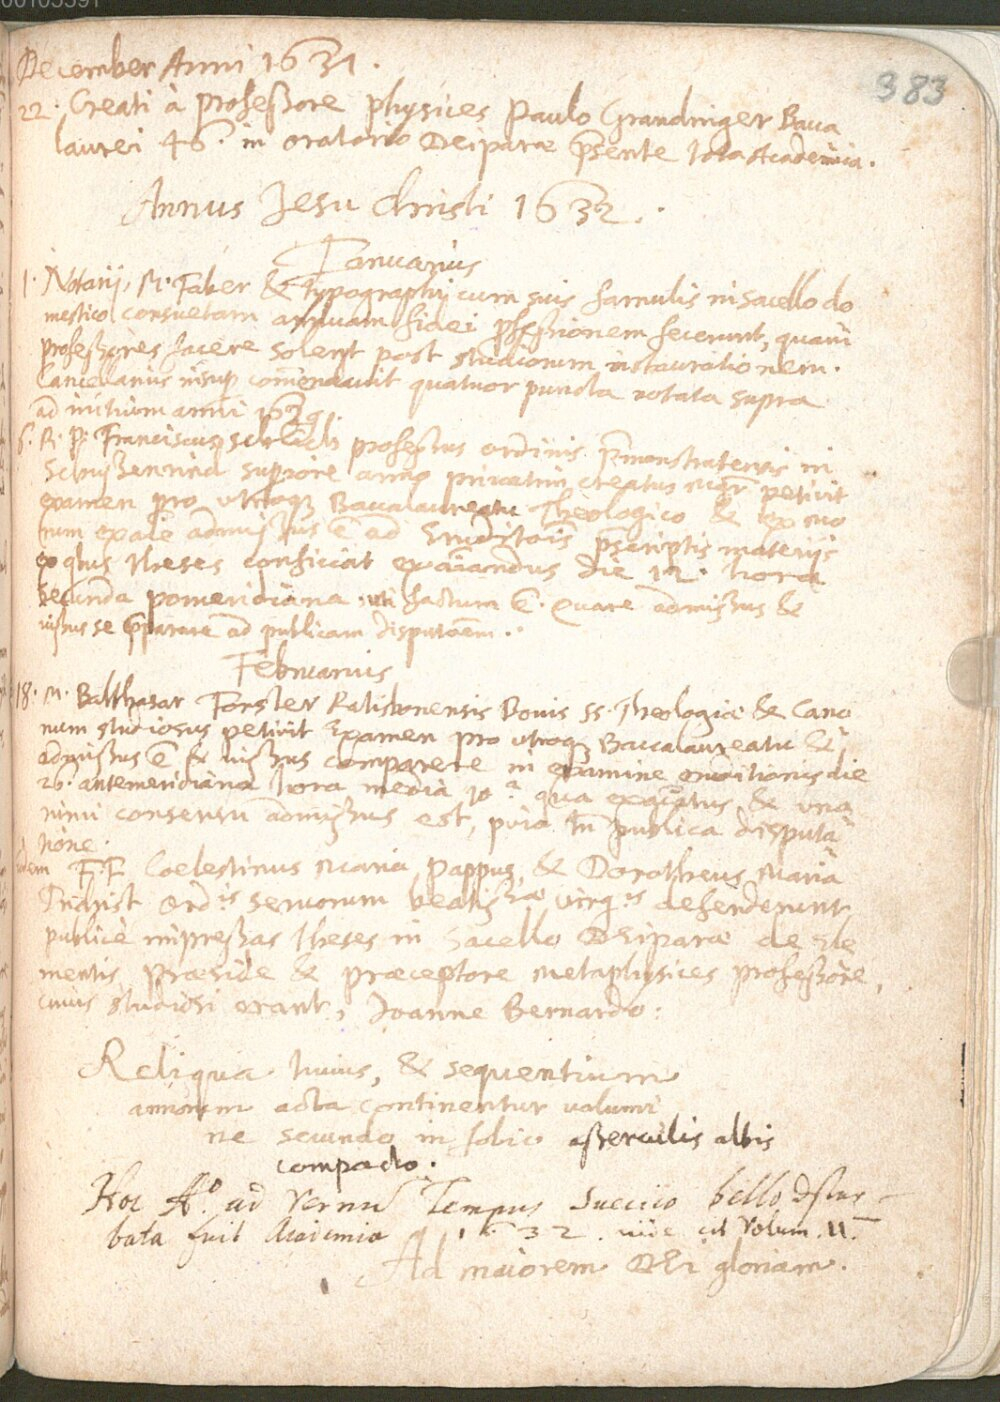 00105391
383
December Anni 1631.
22. Creati à professore physices Paulo Grandinger Bacca
laurei 46. in oratorio Deiparæ p̃sente tota Academia.
Annus Jesu Christi 1632.
Januarius
1. Notarij, M. Faber & typographij cum suis famulis in sacello do
mestico consuetam annuam fidei p̃fessionem fecerunt, quam
professores facere solent post studiorum instaurationem.
Cancellarius insup com̃endavit quatuor puncta notata supra
ad initium anni 1629.
6. R. P. Franciscus professus ordinis P̃monstratensis in
Schussenried supiore anno privatim creatus Mgr̃ petivit
examen pro utroq Baccalaureatu Theologico & ex
num admissus ẽ ad Eruditõis p̃scriptis materijs
ex qbus theses conficiat exãiandus die 12. hora
secunda pomeridiana uti factum ẽ. Quare admissus &
iussus se p̃parare ad publicam disputaõem.
Februarius
18. M. Balthasar Forster Ratisbonensis Bouis SS. Theologiæ & Cano
num studiosus petivit Examen pro utroq Baccalaureatu &
admissus ẽ & iussus comparere in examine eruditionis die
26. antemeridiana hora media 10.ª qua exãiatus & una
nimi consensu admissus est, p̃via tñ publica disputa
tione.
Idem F.F. Coelestinus Maria Pappus, & Dorotheus Maria
Tridrist Ordis servorum beatissæ virgis defenderunt
publicè impressas theses in Sacello Deiparæ de Ele
mentis Præside & præceptore Metaphysices professore,
cuius studiosi erant, Joanne Bernardo:
Reliqua huius, & sequentium
annorum acta continentur volumi
ne secundo in folio asserculis albis
compacto.
Hoc Aº. ad Vernũ Tempus Suecico bello dstur-
bata fuit Academia 1632. vide Volum. II.
Ad maiorem DEI gloriam.